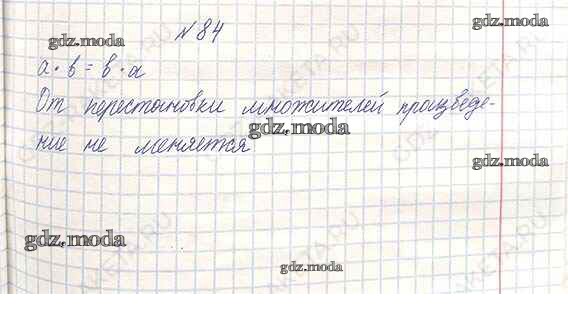 № 84
gdz.moda
gdz.moda
а · в = в · а
От перестановки множителей произведе-
gdz.moda
ние не меняется
gdz.moda
gdz.moda
gdz.moda